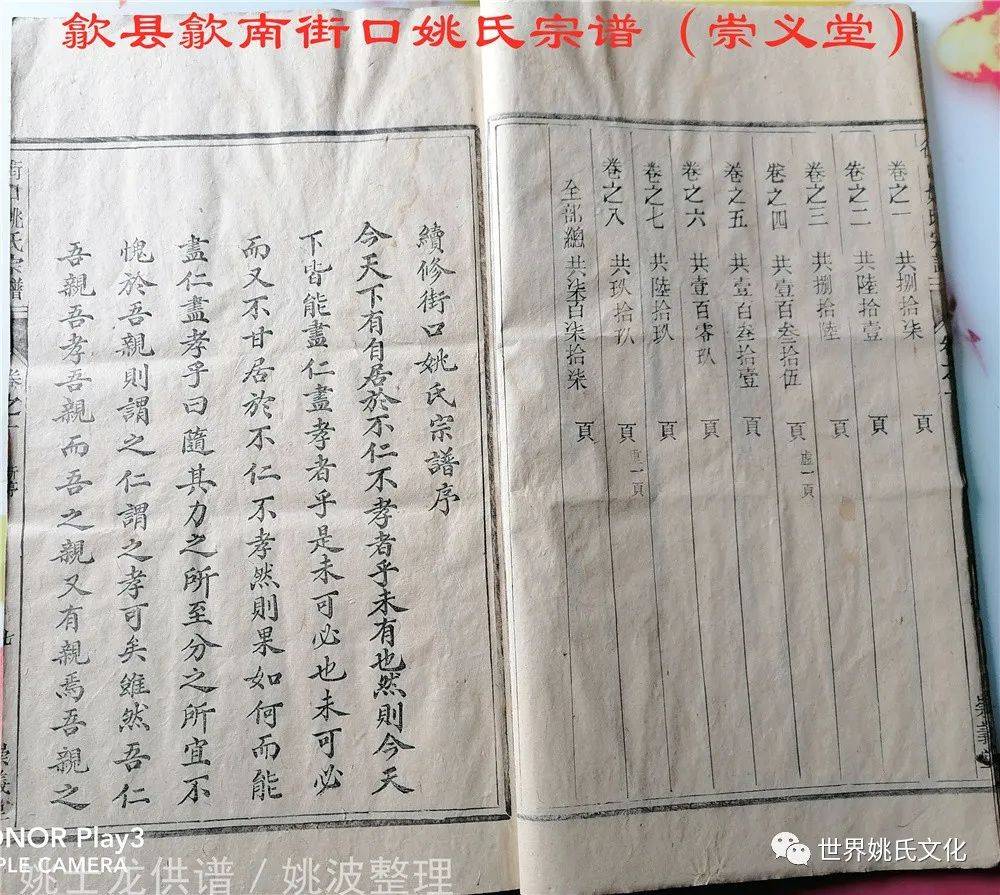 歙县歙南街口姚氏宗谱（崇义堂）
卷之一 共捌拾柒 頁
卷之二 共陸拾壹 頁
卷之三 共捌拾陸 頁
卷之四 共壹百叁拾伍 頁 虛一頁
卷之五 共壹百叁拾壹 頁
卷之六 共壹百零玖 頁
卷之七 共陸拾玖 頁
卷之八 共玖拾玖 頁 一頁
全部總共柒百柒拾柒 頁
續修街口姚氏宗譜序
今天下有自居於不仁不孝者乎未有也然則今天
下皆能盡仁盡孝者乎是未可必也未可必
而又不甘居於不仁不孝然則果如何而能
盡仁盡孝乎曰隨其力之所至分之所宜不
愧於吾親則謂之仁謂之孝可矣雖然吾仁
吾親吾孝吾親而吾之親又有親焉吾親之
街口姚氏宗譜 卷之一 七
HONOR Play3
PLE CAMERA
姚士龙供谱 / 姚波整理
世界姚氏文化